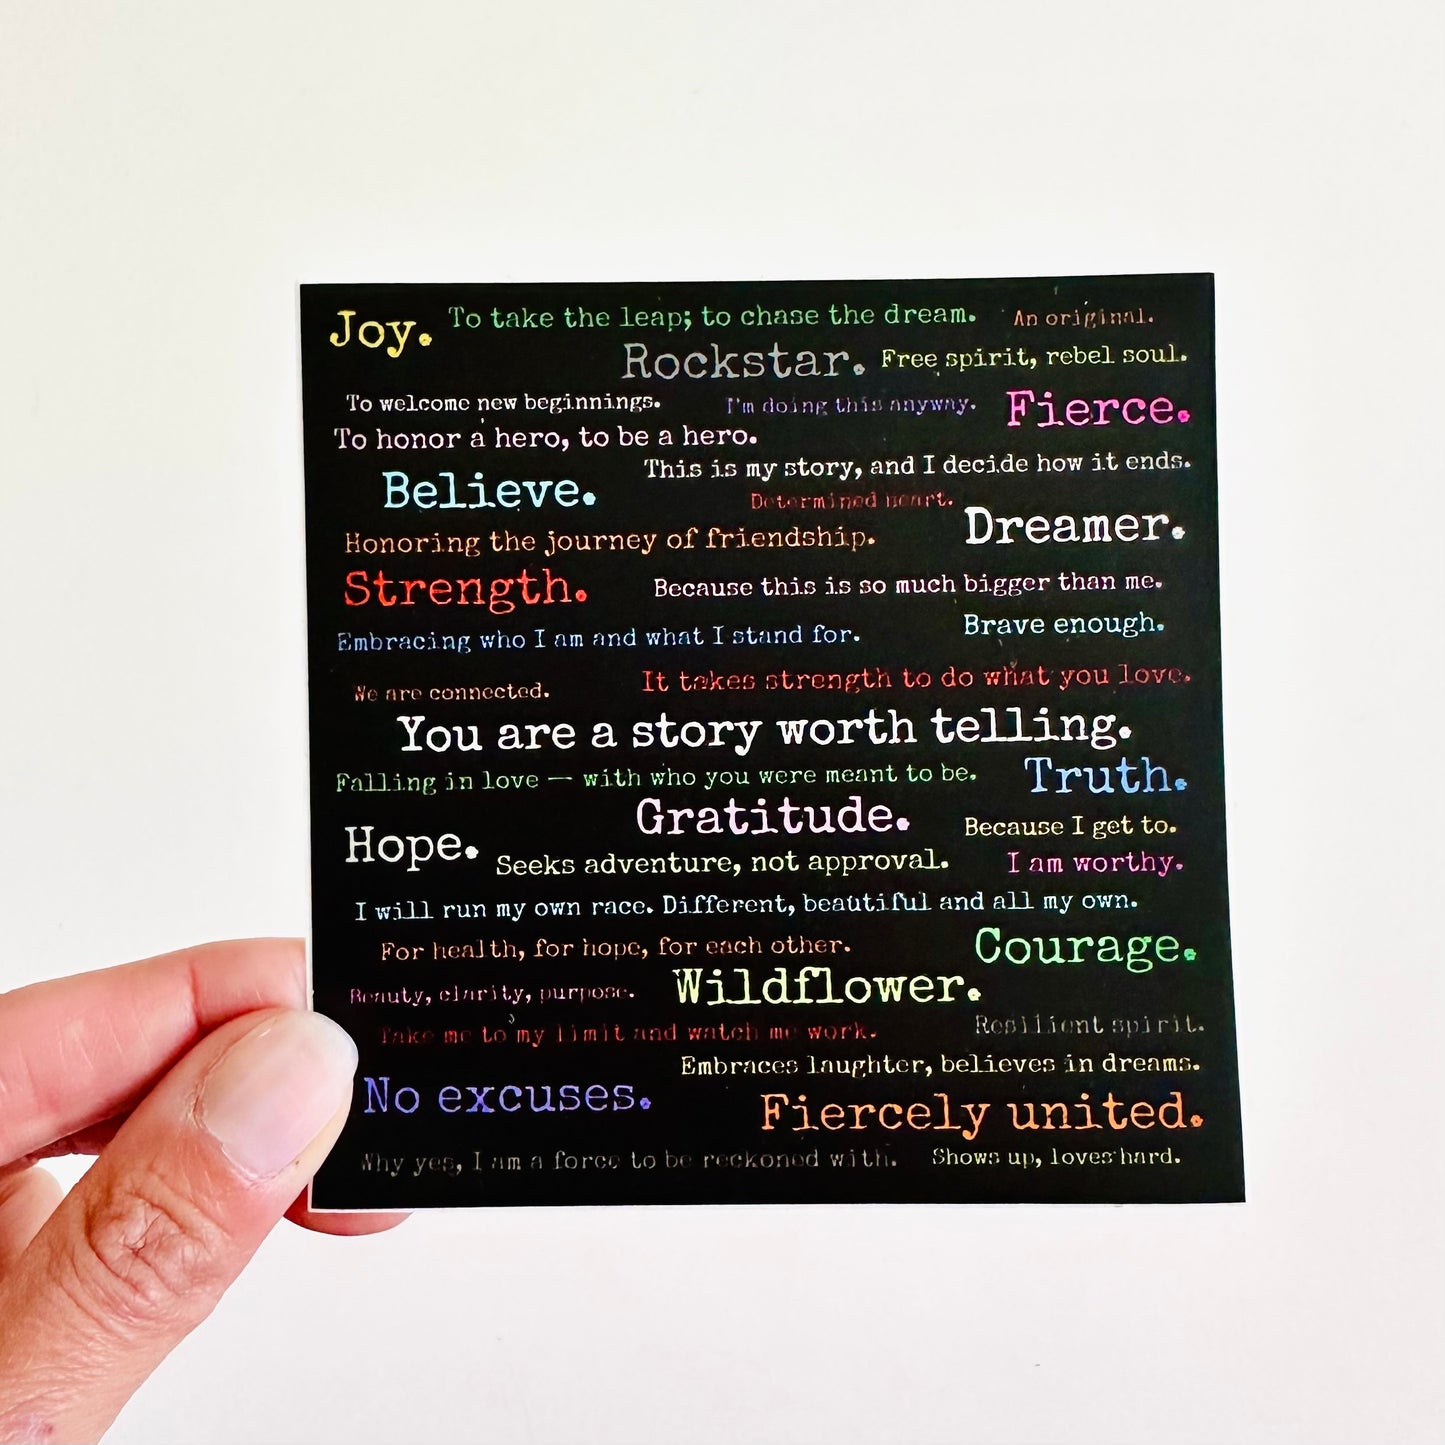 Joy. To take the leap; to chase the dream. An original.
Rockstar. Free spirit, rebel soul.
To welcome new beginnings. I'm doing this anyway. Fierce.
To honor a hero, to be a hero.
This is my story, and I decide how it ends.
Believe. Determined heart.
Dreamer.
Honoring the journey of friendship.
Strength. Because this is so much bigger than me.
Embracing who I am and what I stand for. Brave enough.
We are connected. It takes strength to do what you love.
You are a story worth telling.
Falling in love — with who you were meant to be. Truth.
Gratitude. Because I get to.
Hope. Seeks adventure, not approval. I am worthy.
I will run my own race. Different, beautiful and all my own.
For health, for hope, for each other. Courage.
Beauty, clarity, purpose. Wildflower.
Take me to my limit and watch me work. Resilient spirit.
Embraces laughter, believes in dreams.
No excuses. Fiercely united.
Why yes, I am a force to be reckoned with. Shows up, loves hard.